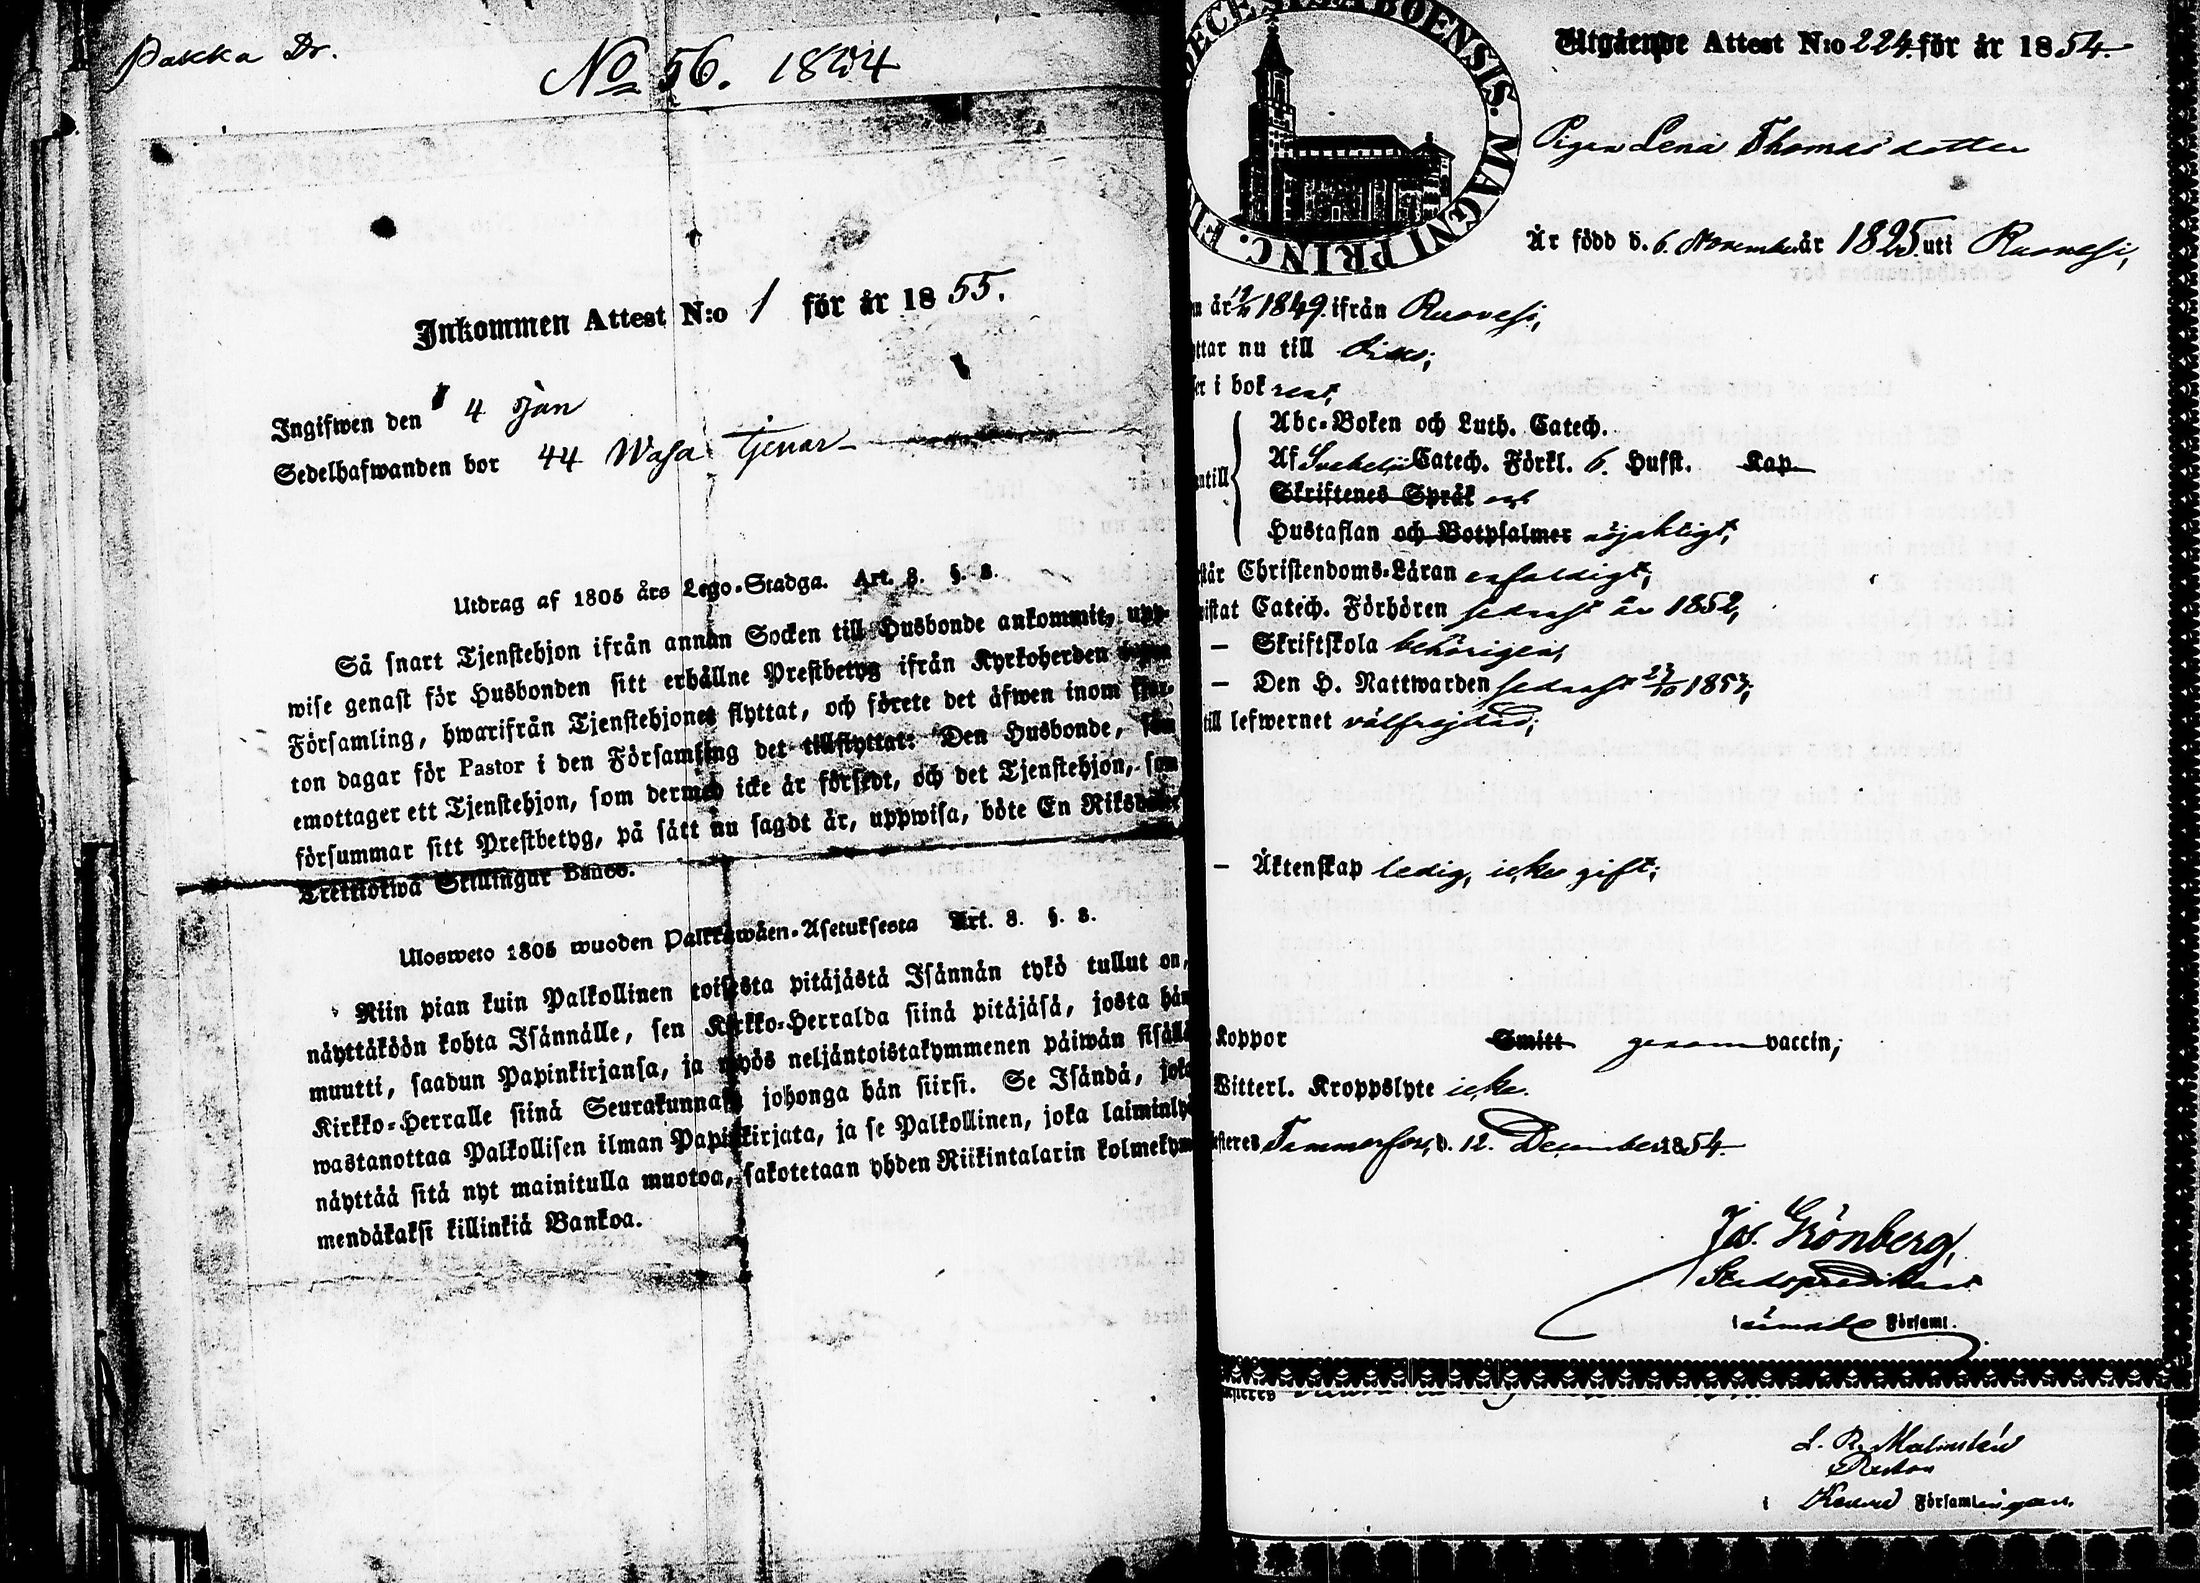 Pakka Dr.
No 56. 1854
Inkommen Attest N:o 1 för år 1855.
Ingifwen den 4 Jan
Sedelhafwanden bor 44 Wasa tjenar
Utdrag af 1805 års Lego-Stadga. Art. 8. §. 8.
Så snart Tjenstehjon ifrån annan Socken till Husbonde ankommit, upp-
wise genast för Husbonden sitt erhållne Prestbetyg ifrån Kyrkoherden
Församling, hwarifrån Tjenstehjonet flyttat, och förete det äfwen inom fjor-
ton dagar för Pastor i den Församling det tillflyttat: Den Husbonde, som
emottager ett Tjenstehjon, som dermed icke är försedt, och det Tjenstehjon, som
försummar sitt Prestbetyg, på sätt nu sagdt är, uppwisa, böte En Riksdaler
Trettiotwå Skillingar Banco.
Ulosweto 1805 wuoden Palkkawäen-Asetuksesta Art. 8. §. 8.
Niin pian kuin Palkollinen toisesta pitäjästä Isännän tykö tullut on,
näyttäköön kohta Isännälle, sen Kirkko-Herralda siinä pitäjäsä, josta hän
muutti, saadun Papinkirjansa, ja myös neljäntoistakymmenen päiwän sisällä
Kirkko-Herralle siinä Seurakunnasa johonga hän siirsi. Se Isändä, joka
wastanottaa Palkollisen ilman Papinkirjata, ja se Palkollinen, joka laiminlyö
näyttää sitä nyt mainitulla muotoa, sakotetaan yhden Riikintalarin kolmekym-
mendäkaksi killinkiä Bankoa.
ECES ABOENSIS. MAGNI PRINC. FI
Utgående Attest N:o 224 för år 1854.
Pigan Lena Thomasdotter
Är född d. 6. November år 1825 uti Ruovesi,
n år 1849 ifrån Ruovesi,
ttar nu till
er i bok rent,
Abc-Boken och Luth. Catech.
Af Svebelii Catech. Förkl. 6. Hufst. Kap.
antill
Skriftenes Språk
Hustaflan och Botpsalmer nöjaktigt,
står Christendoms-Läran enfaldigt,
istat Catech. Förhören sednast år 1852,
— Skriftskola behörigen,
— Den H. Nattwarden sednast 23/10 1853,
till lefwernet välfrejdad;
— Äktenskap ledig, icke gift;
Koppor Smitt genom vaccin;
Witterl. Kroppslyte icke.
steres Tammerfors, d. 12. December 1854.
Jos. Grönberg,
Stadspredikant
i Församl.
L. R. Malmstén
Pastor
i Församlingen.